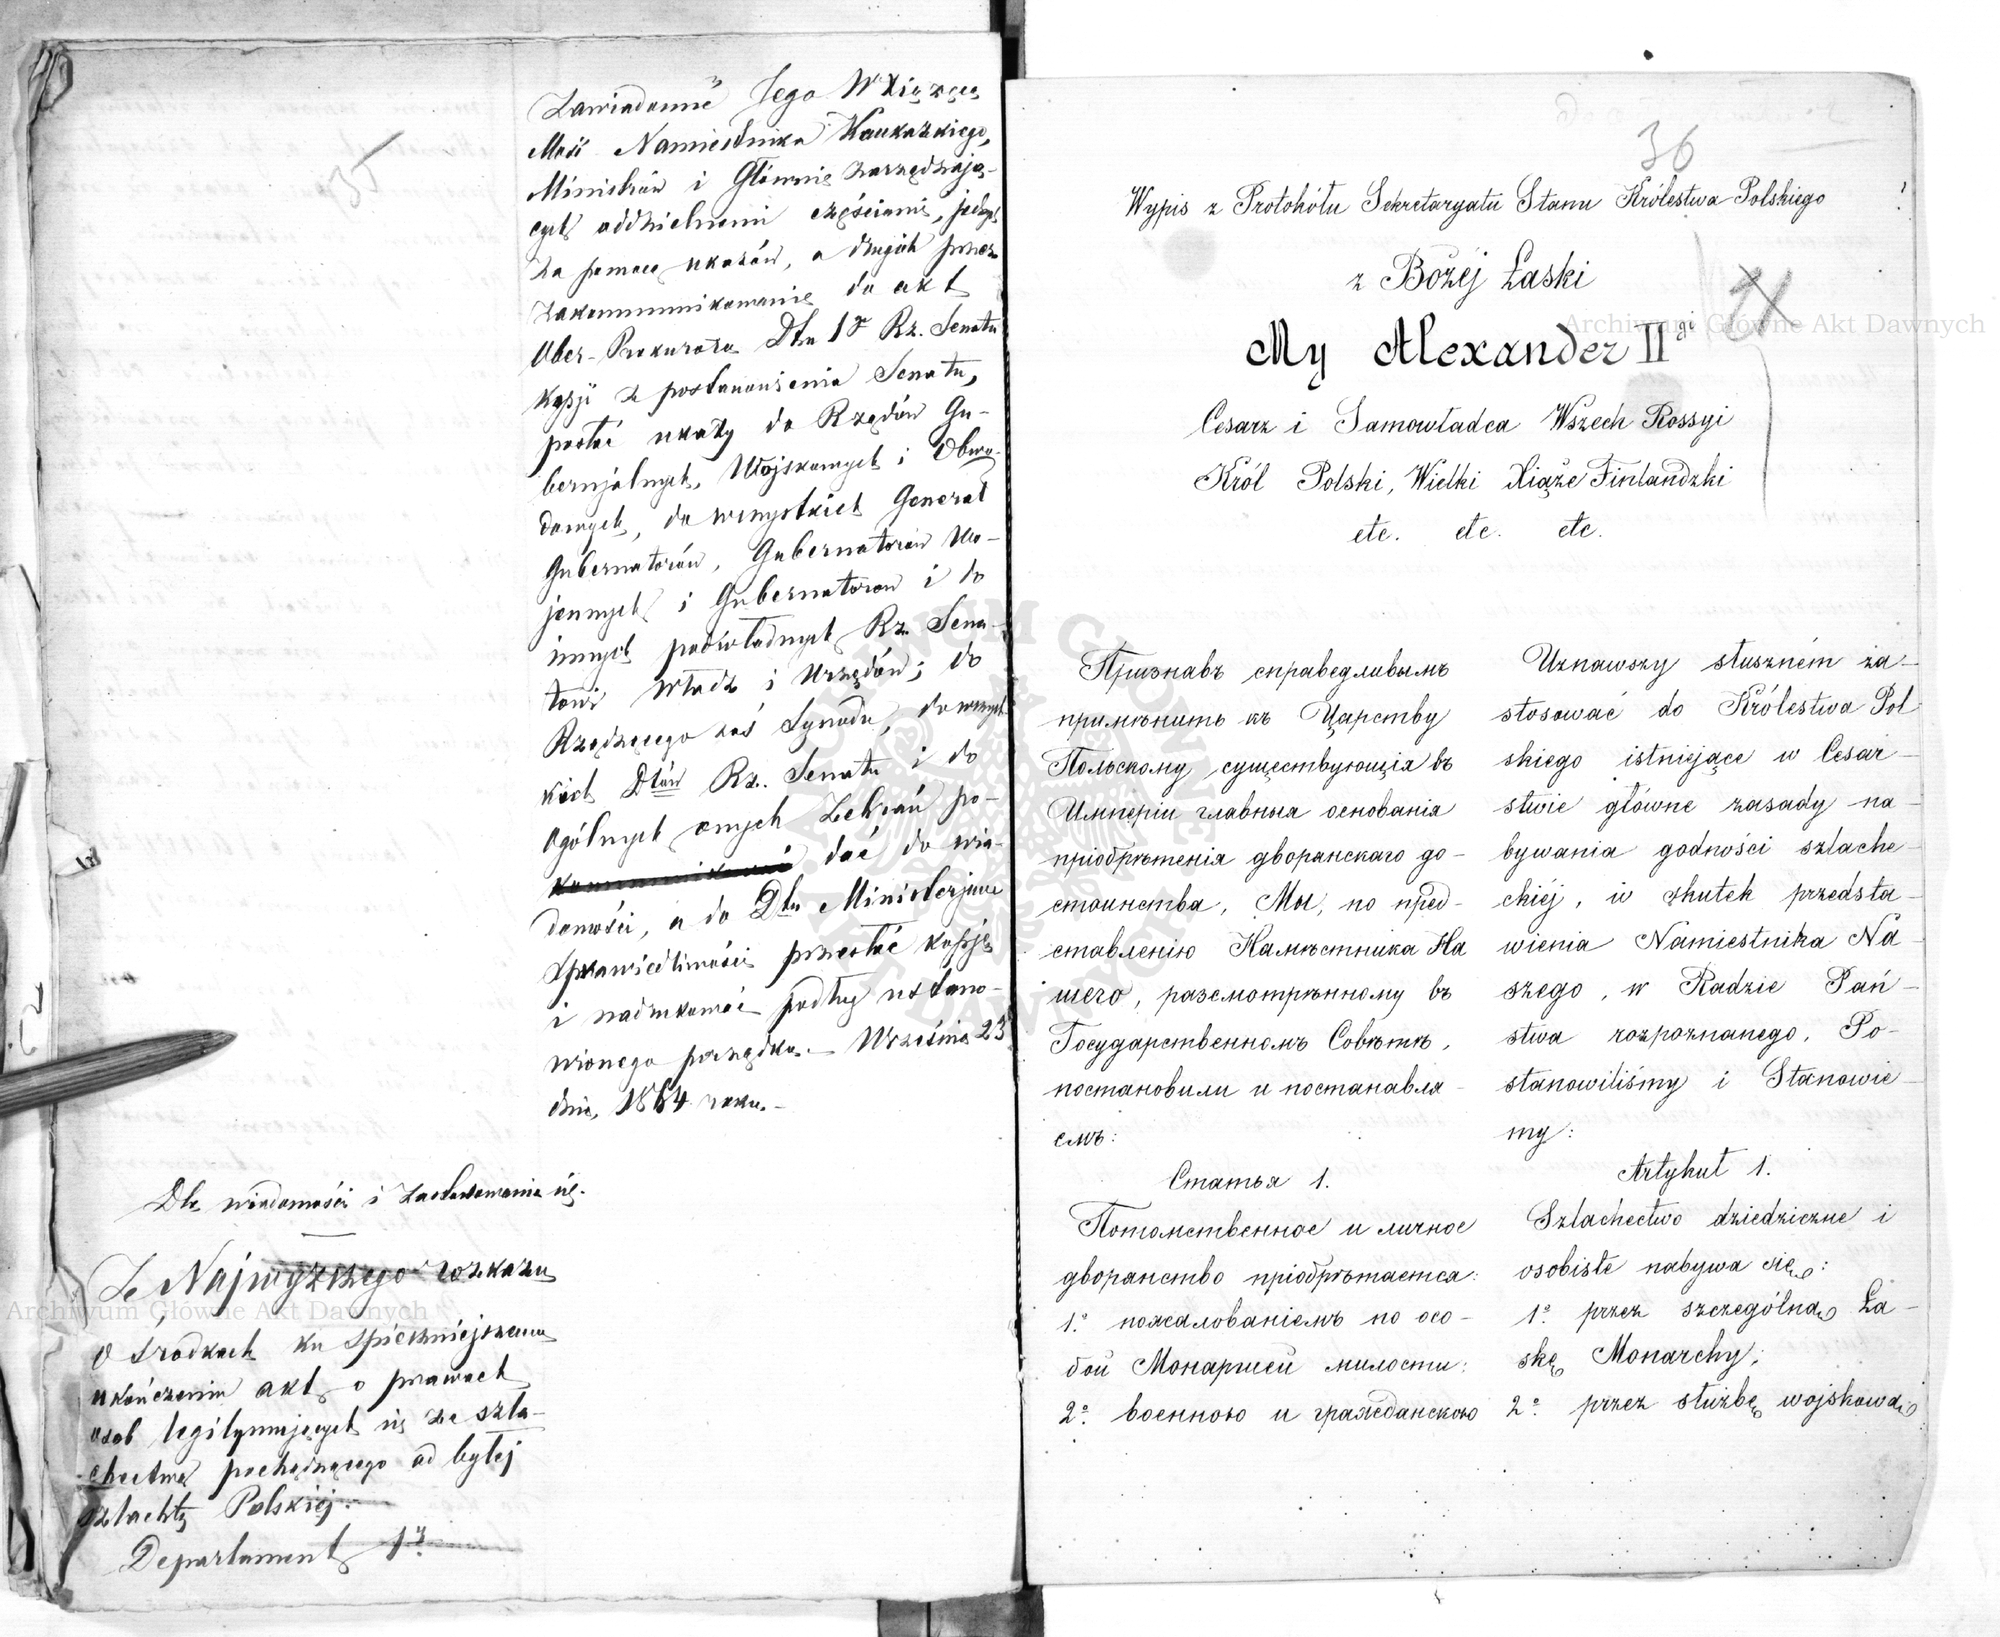 35
Zawiadomić Jego W Xiążęcą
Mość Namiestnika Kaukazkiego,
Ministrów i Głównie Zarządzają-
cych oddzielnemi częściami, jednych
za pomocą ukazów, a drugich przez
zakommunikowanie do akt
Ober-Prokurora Dtu 1º Rz. Senatu
kopji z postanowienia Senatu,
posłać ukazy do Rządów Gu-
bernjalnych, Wojskowych i Obwo-
dowych, do wszystkich Generał
Gubernatorów, Gubernatorów Wo-
jennych i Gubernatorow i do
innych podwładnych Rz. Sena-
towi Władz i Urzędów; do
Rządzącego zaś Synodu, do wszyst
kich Dtów Rz. Senatu i do
Ogólnych onych Zebrań po-
dać do wia-
domości, a do Dtu Ministerjum
Sprawiedliwości przesłać kopję
i nadrukować podług ustano-
wionego porządku. Września 23
dnia, 1864 roku.-
Dla wiadomości i zastosowania się.
Z Najwyższego rozkazu
O środkach ku spieszniejszemu
ukończeniu akt o prawach
osob legitymujących się ze szla-
chectwa pochodzącego od byłej
szlachty Polskiej.
Departament 1y.
36
Wypis z Protokółu Sekretaryatu Stanu Królestwa Polskiego
z Bożéj Łaski
My Alexander IIgi
Cesarz i Samowładca Wszech Rossyi
Król Polski, Wielki Xiąże Finlandzki
etc. etc. etc.
Признавъ справедливымъ
примѣнить къ Царству
Польскому существующія въ
Имперіи главныя основанія
пріобрѣтенія дворянскаго до-
стоинства, Мы, по пред-
ставленію Намѣстника На
шего, разсмотрѣнному въ
Государственномъ Совѣтѣ,
постановили и постановля-
емъ:
Статья 1.
Потомственное и личное
дворянство пріобрѣтается:
1.º пожалованіемъ по осо-
бой Монаршей милости:
2º. военною и гражданскою
Uznawszy słuszném za-
stosować do Królestwa Pol
skiego istniejące w Cesar-
stwie główne zasady na-
bywania godności szlache-
ckiéj, w skutek przedsta-
wienia Namiestnika Na-
szego, w Radzie Pań-
stwa rozpoznanego, Po-
stanowiliśmy i Stanowie-
my:
Artykuł 1.
Szlachectwo dziedziczne i
osobiste nabywa się:
1º przez szczególną Ła-
skę Monarchy;
2º. przez służbę wojskową
Archiwum Główne Akt Dawnych
Archiwum Główne Akt Dawnych
ARCHIWUM GŁÓWNE AKT DAWNYCH